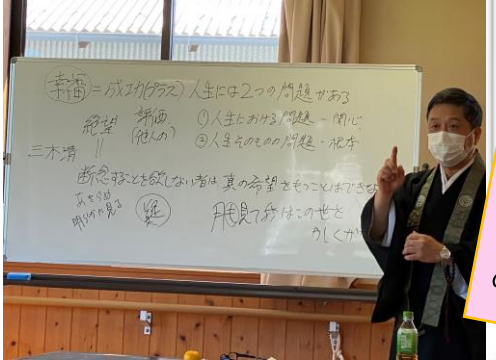 幸福=成功(プラス) 人生には2つの問題がある
絶望 評価 ①人生における問題-関心
(他人の) ②人生そのものの問題・根本
三木清
断念することを欲しない者は真の希望をもつことはできな
あきらめ
明らかに見る
月を見て我はこの世を